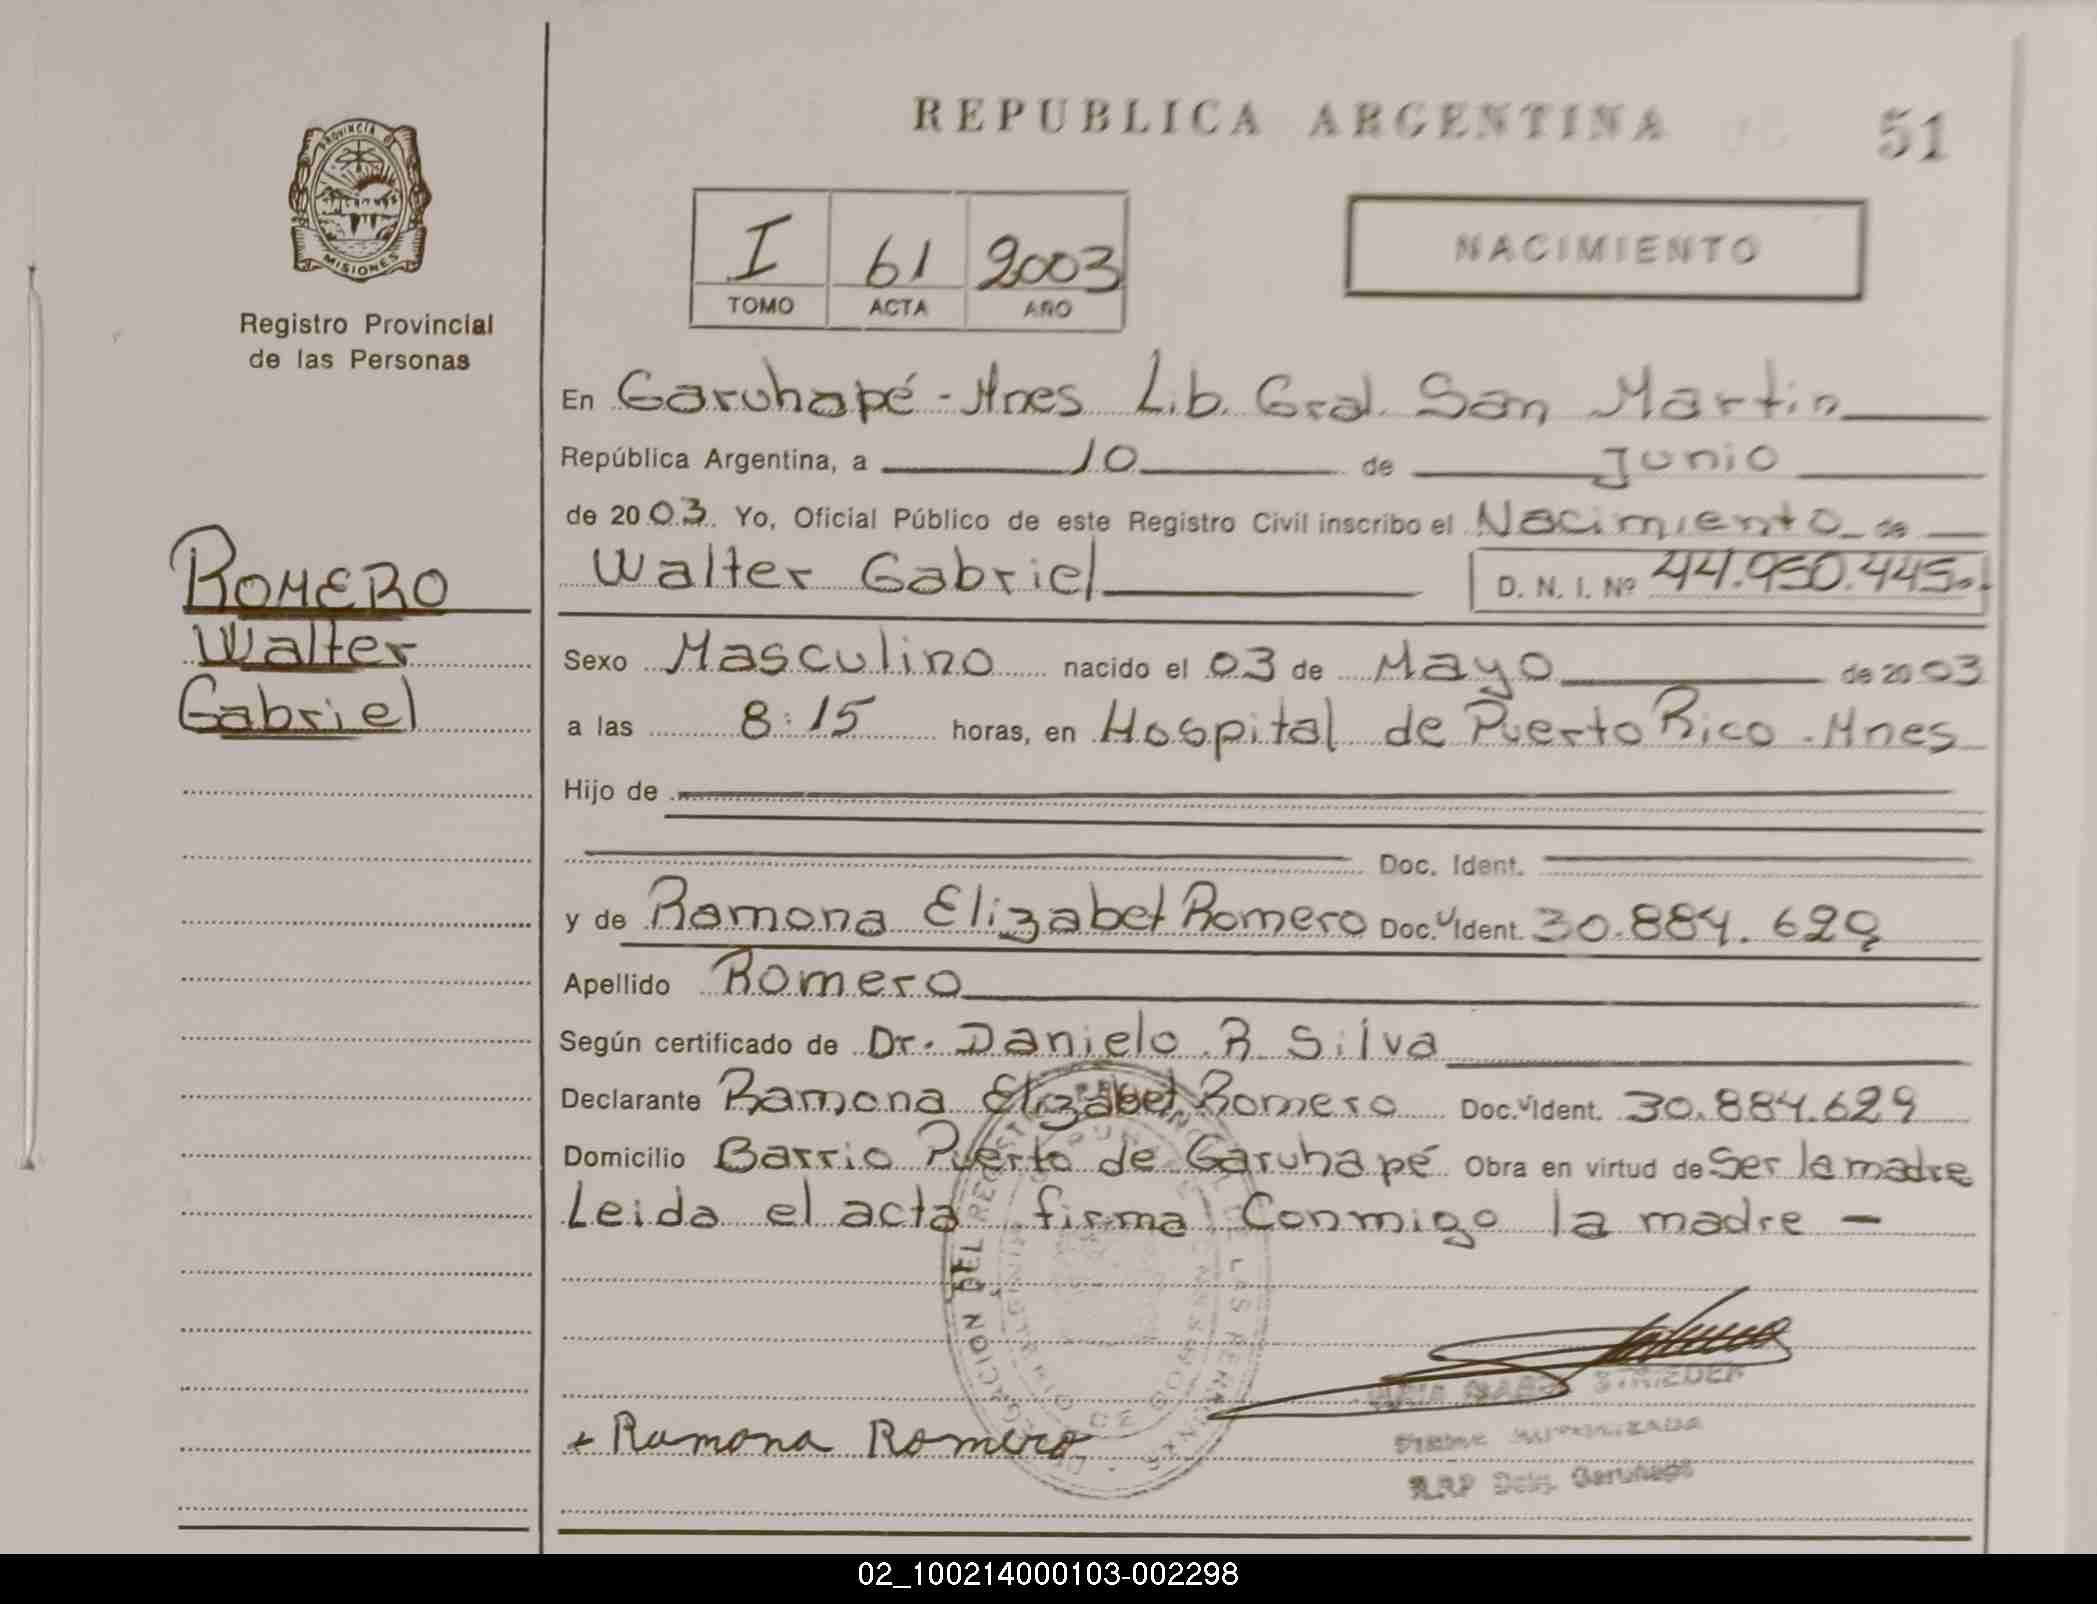 REPUBLICA ARGENTINA
51
PROVINCIA D
MISIONES
Registro Provincial
de las Personas
I 61 2003
TOMO ACTA AÑO
NACIMIENTO
ROMERO
Walter
Gabriel
En Garuhapé - Mnes Lib. Gral. San Martin
República Argentina, a 10 de Junio
de 2003. Yo, Oficial Público de este Registro Civil inscribo el Nacimiento de
Walter Gabriel D. N. I. Nº 44.950.445.
Sexo Masculino nacido el 03 de Mayo de 2003
a las 8:15 horas, en Hospital de Puerto Rico - Mnes
Hijo de
Doc. Ident.
y de Ramona Elizabet Romero Doc. Ident. 30.884.629
Apellido Romero
Según certificado de Dr. Danielo R Silva
Declarante Ramona Elizabet Romero Doc. Ident. 30.884.629
Domicilio Barrio Puerto de Garuhapé Obra en virtud de Ser la madre
Leida el acta firma Conmigo la madre -
DEL REGISTRO LAS PERSONAS
STRIEDER
FIRMA AUTORIZADA
R.R.P Deleg. Garuhapé
+ Ramona Romero
02_100214000103-002298